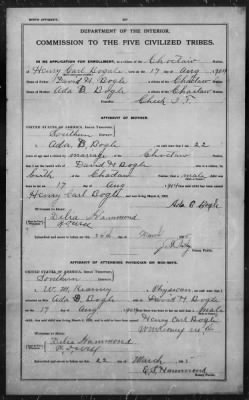 BIRTH AFFIDAVIT.
DEPARTMENT OF THE INTERIOR.
COMMISSION TO THE FIVE CIVILIZED TRIBES.
IN RE APPLICATION FOR ENROLLMENT, as a citizen of the Choctaw Nation,
of Henry Carl Bogle, born on the 17 day of Aug, 1904
Name of Father: David H. Bogle a citizen of the Choctaw Nation.
Name of Mother: Ada B. Bogle a citizen of the Choctaw Nation.
Postoffice Cheek I.T.
AFFIDAVIT OF MOTHER.
UNITED STATES OF AMERICA, Indian Territory,
Southern District.
I, Ada B Bogle, on oath state that I am 22
years of age and a citizen by marriage, of the Choctaw Nation;
that I am the lawful wife of David H Bogle, who is a citizen, by
birth of the Choctaw Nation; that a male child was
born to me on 17 day of Aug, 1904; that said child has been named
Henry Carl Bogle, and was living March 4, 1905.
Ada B. Bogle
Witnesses to Mark:
Delia Hammond
Subscribed and sworn to before me this
Notary Public.
AFFIDAVIT OF ATTENDING PHYSICIAN OR MID-WIFE.
UNITED STATES OF AMERICA, Indian Territory,
Southern District.
I, a Physician, on oath state that I
attended on Mrs. Ada B. Bogle, wife of David H. Bogle
on the 17 day of Aug, 1904; that there was born to her on said date a male
child; that said child was living March 4, 1905, and is said to have been named Henry Carl Bogle
Witnesses to Mark:
Delia Hammond
Subscribed and sworn to before me this 22 day of March, 1905.
Hammond
Notary Public.